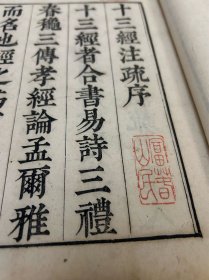 十三經注疏序
十三經者合書易詩三禮
春秋三傳孝經論孟爾雅
而名也經之